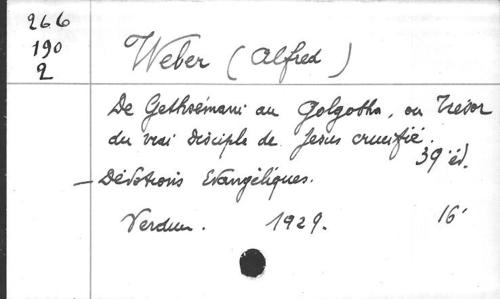 266
190
2
Weber (Alfred)
De Gethsémani au Golgotha, ou Trésor
du vrai disciple de Jésus crucifié.
39 éd.
- Dévotions Evangéliques.
Verdun. 1929. 16°